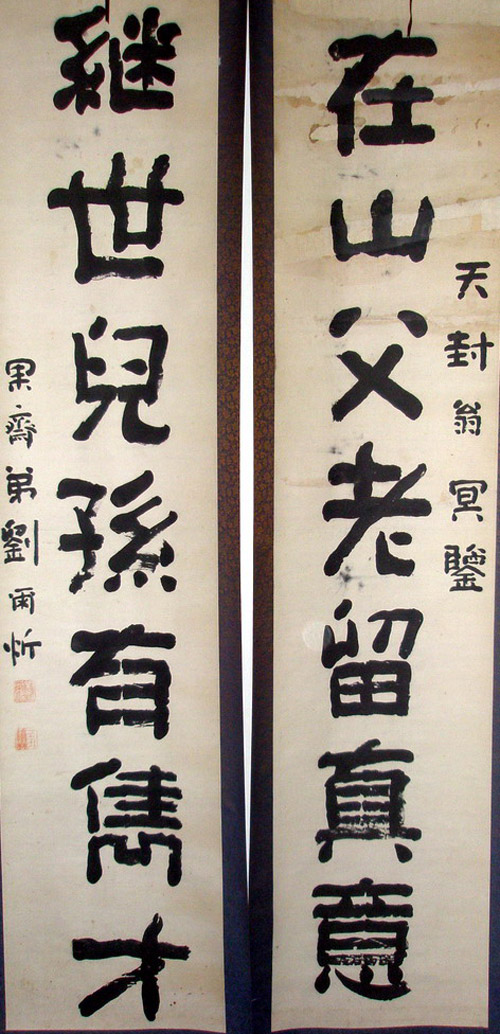 天封翁 冥鑒
在山父老留真意
継世兒孫有儁才
果齋弟劉爾炘